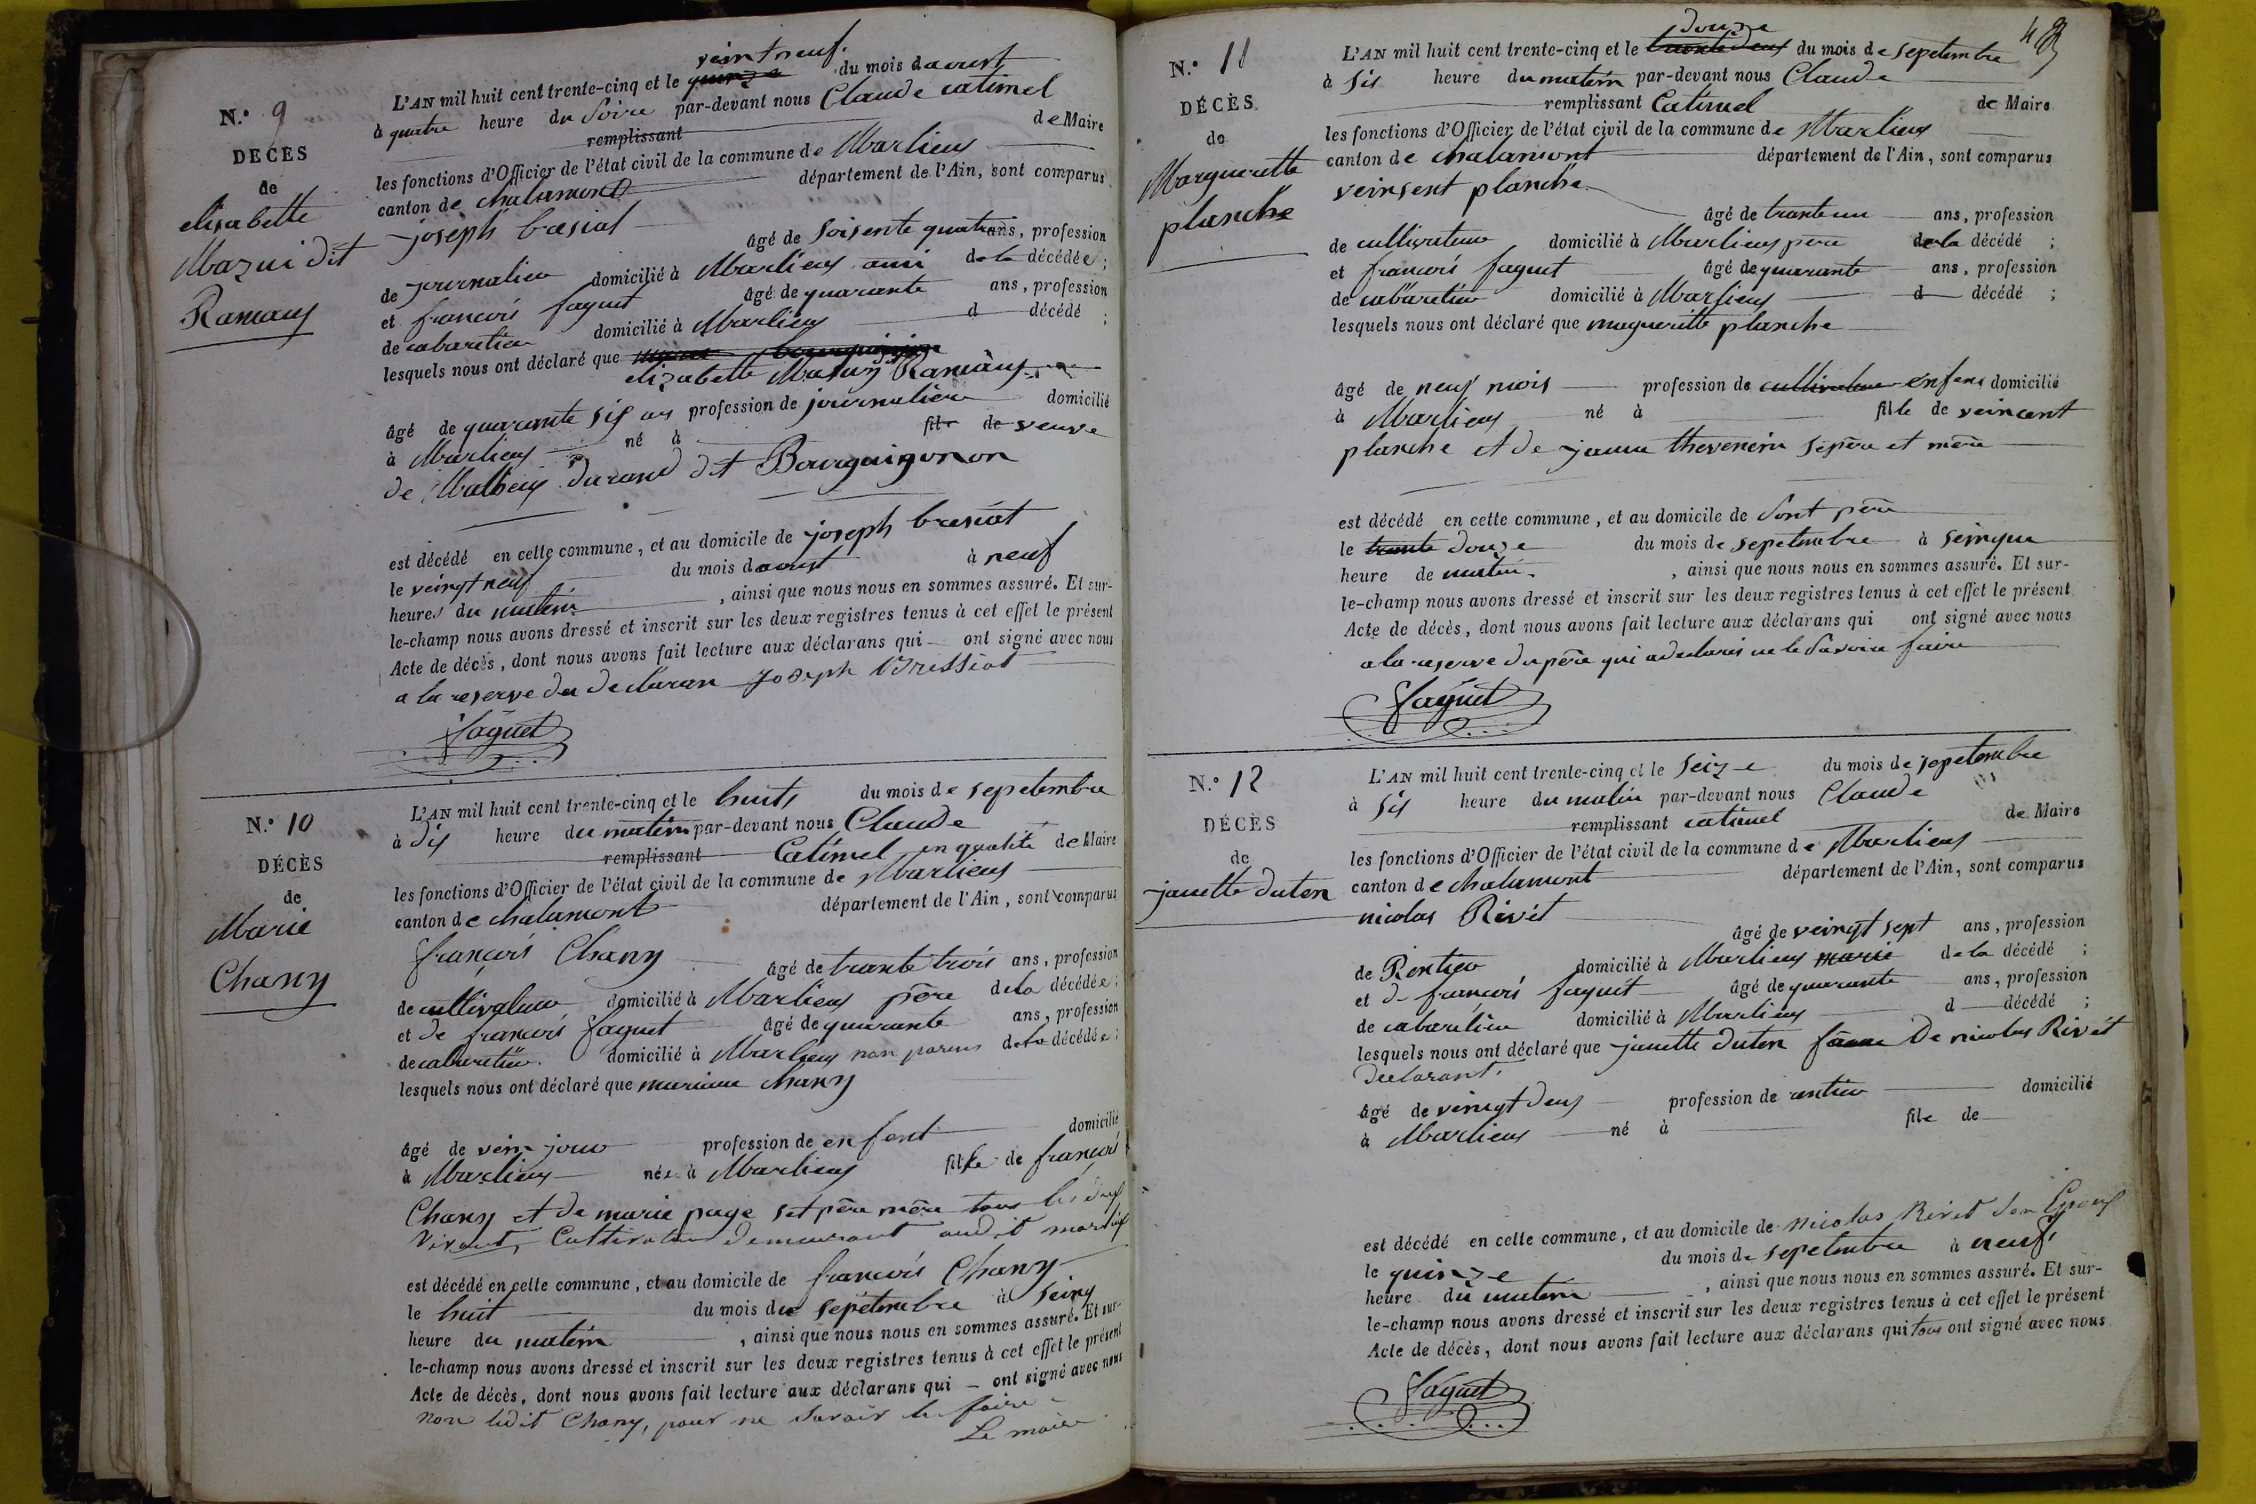 N.° 9
DÉCÈS
de
elisabette
Mazui dit
Ramaus
veint neuf.
L'AN mil huit cent trente-cinq et le quinze du mois d aoust
à quatre heure du Soire par-devant nous Claude catimel
remplissant de Maire
les fonctions d'Officier de l'état civil de la commune de Marlieus
canton de chalamont département de l'Ain, sont comparus
joseph bresiat âgé de Soisente quatre ans, profession
de journalier domicilié à Marlieus ami de la décédée ;
et francois faguet âgé de quarante ans, profession
de cabaretier domicilié à Marlieus d décédé ;
lesquels nous ont déclaré que
elizabette Mazuy Ramaus
âgé de quarante sis ans profession de journaliere domicilié
à Marlieus né à fils de veuve
de Mathieu durand dit Bourguignon
est décédé en cette commune, et au domicile de joseph bresiat
le veingt neuf du mois d aoust à neuf
heures du matin , ainsi que nous nous en sommes assuré. Et sur-
le-champ nous avons dressé et inscrit sur les deux registres tenus à cet effet le présent
Acte de décès, dont nous avons fait lecture aux déclarans qui ont signé avec nous
a la reserve du declaran Joseph Bressiat
faguet
N.° 10
DÉCÈS
de
Marie
Chany
L'AN mil huit cent trente-cinq et le huits du mois de sepetembre
à dis heure du matin par-devant nous Claude
remplissant Catimel en qualité de Maire
les fonctions d'Officier de l'état civil de la commune de Marlieus
canton de chalamont département de l'Ain, sont comparus
francois Chany âgé de trante trois ans, profession
de cultivateur domicilié à Marlieus père de la décédée ;
et de francois faguet âgé de quarante ans, profession
de cabaretier domicilié à Marlieus non parens de la décédée ;
lesquels nous ont déclaré que mariane chany
âgé de vein jour profession de enfent domicilié
à Marlieus née à Marlieus fille de francois
Chany et de marie page set père mère tous les deux
vivant, Cultivateur demeurant audit marlieux
est décédé en cette commune, et au domicile de francois Chany
le huit du mois de sepetembre à seinq
heure du matin , ainsi que nous nous en sommes assuré. Et sur-
le-champ nous avons dressé et inscrit sur les deux registres tenus à cet effet le présent
Acte de décès, dont nous avons fait lecture aux déclarans qui ont signé avec nous
non ledit Chany, pour ne savoir le faire
Le maire
N.° 11
DÉCÈS
de
Marguerette
planche
douze
L'AN mil huit cent trente-cinq et le trante deux du mois de sepetembre
à sis heure du matin par-devant nous Claude
remplissant Catimel de Maire
les fonctions d'Officier de l'état civil de la commune de Marlieus
canton de chalamont département de l'Ain, sont comparus
veinsent planche
âgé de trante un ans, profession
de cultivateur domicilié à Marlieus père de la décédé ;
et francois faguet âgé de quarante ans, profession
de cabaretier domicilié à Marlieus d décédé ;
lesquels nous ont déclaré que maguerite planche
âgé de neuf mois profession de cultivateur enfens domicilié
à Marlieus né à fille de veincent
planche et de jeanne thevenein se père et mère
est décédé en cette commune, et au domicile de sont père
le trante douze du mois de sepetembre à seinque
heure de matin , ainsi que nous nous en sommes assuré. Et sur-
le-champ nous avons dressé et inscrit sur les deux registres tenus à cet effet le présent
Acte de décès, dont nous avons fait lecture aux déclarans qui ont signé avec nous
a la reserve du père qui a declarés ne le savoire faire
faguet
N.° 12
DÉCÈS
de
janette duten
L'AN mil huit cent trente-cinq et le seize du mois de sepetembre
à sis heure du matin par-devant nous Claude
remplissant catimel de Maire
les fonctions d'Officier de l'état civil de la commune de Marlieus
canton de chalamont département de l'Ain, sont comparus
nicolas Rivét
âgé de veingt sept ans, profession
de Rentier domicilié à Marlieus marie de la décédé ;
et de francois faguet âgé de quarante ans, profession
de cabaretier domicilié à Marlieus d décédé ;
lesquels nous ont déclaré que janette duten fame De nicolas Rivét
declarant.
âgé de veingt deus profession de rentier domicilié
à Marlieus né à fille de
est décédé en cette commune, et au domicile de nicolas Rivet son Epoux
le quinze du mois de sepetembre à neuf
heure du matin , ainsi que nous nous en sommes assuré. Et sur-
le-champ nous avons dressé et inscrit sur les deux registres tenus à cet effet le présent
Acte de décès, dont nous avons fait lecture aux déclarans qui tous ont signé avec nous
faguet